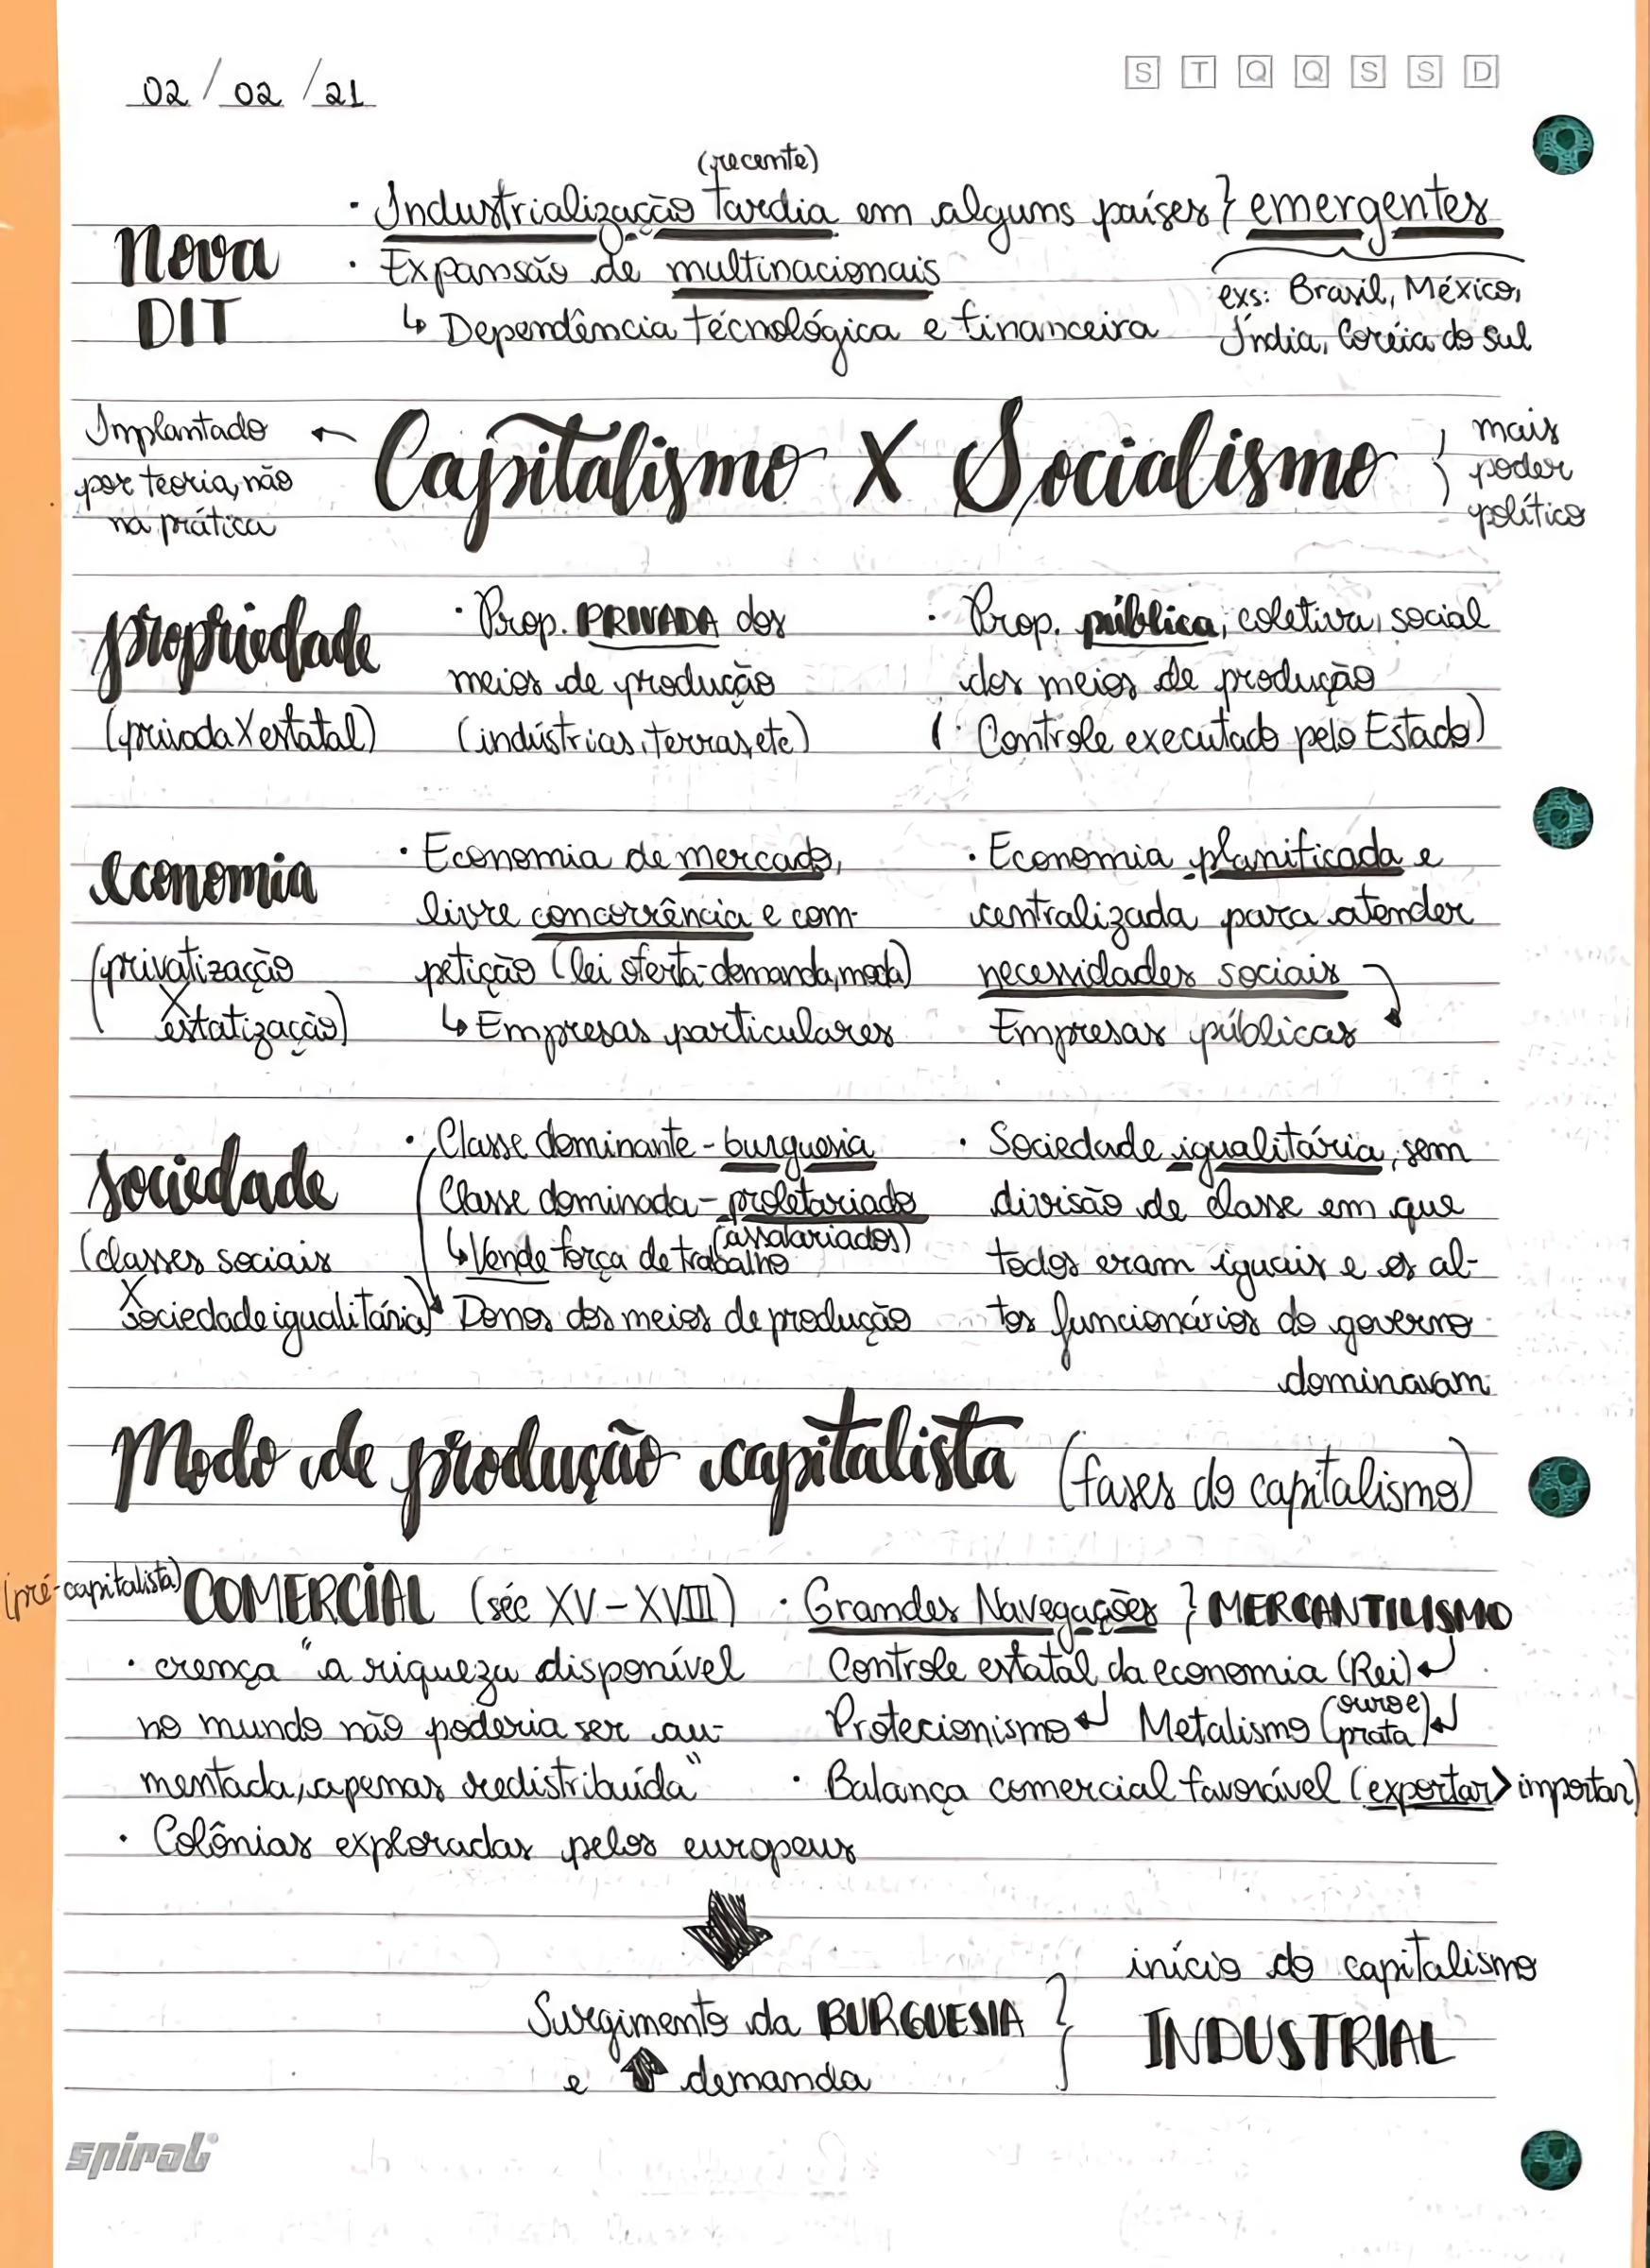 02/02/21
S T Q Q S S D
(recente)
· Industrialização tardia em alguns países } emergentes
Nova
DIT
· Expansão de multinacionais
↳ Dependência técnológica e financeira
exs: Brasil, México,
Índia, Coréia do sul
Implantado
por teoria, não
na prática
← Capitalismo X Socialismo
mais
poder
político
propriedade
(privada X estatal)
· Prop. PRIVADA dos
meios de produção
(indústrias, terras, etc)
· Prop. pública, coletiva, social
dos meios de produção
(· Controle executado pelo Estado)
economia
(privatização
X
estatização)
· Economia de mercado,
livre concorrência e com-
petição (lei oferta-demanda, moda)
↳ Empresas particulares
· Economia planificada e
centralizada para atender
necessidades sociais
Empresas públicas
sociedade
(classes sociais
X
sociedade igualitária)
· Classe dominante - burguesia
Classe dominada - proletariado
(assalariados)
↳ Vende força de trabalho
Donos dos meios de produção
· Sociedade igualitária, sem
divisão de classe em que
todos eram iguais e os al-
tos funcionários do governo
dominavam
Modo de produção capitalista (fases do capitalismo)
(pré-capitalista) COMERCIAL (séc XV - XVIII)
· crença "a riqueza disponível
no mundo não poderia ser au-
mentada, apenas redistribuída"
· Colônias exploradas pelos europeus
· Grandes Navegações } MERCANTILISMO
Controle estatal da economia (Rei) ↲
Protecionismo ↲ Metalismo (ouro e prata) ↲
· Balança comercial favorável (exportar > importar)
Surgimento da BURGUESIA
e ⬆ demanda
início do capitalismo
INDUSTRIAL
spiral